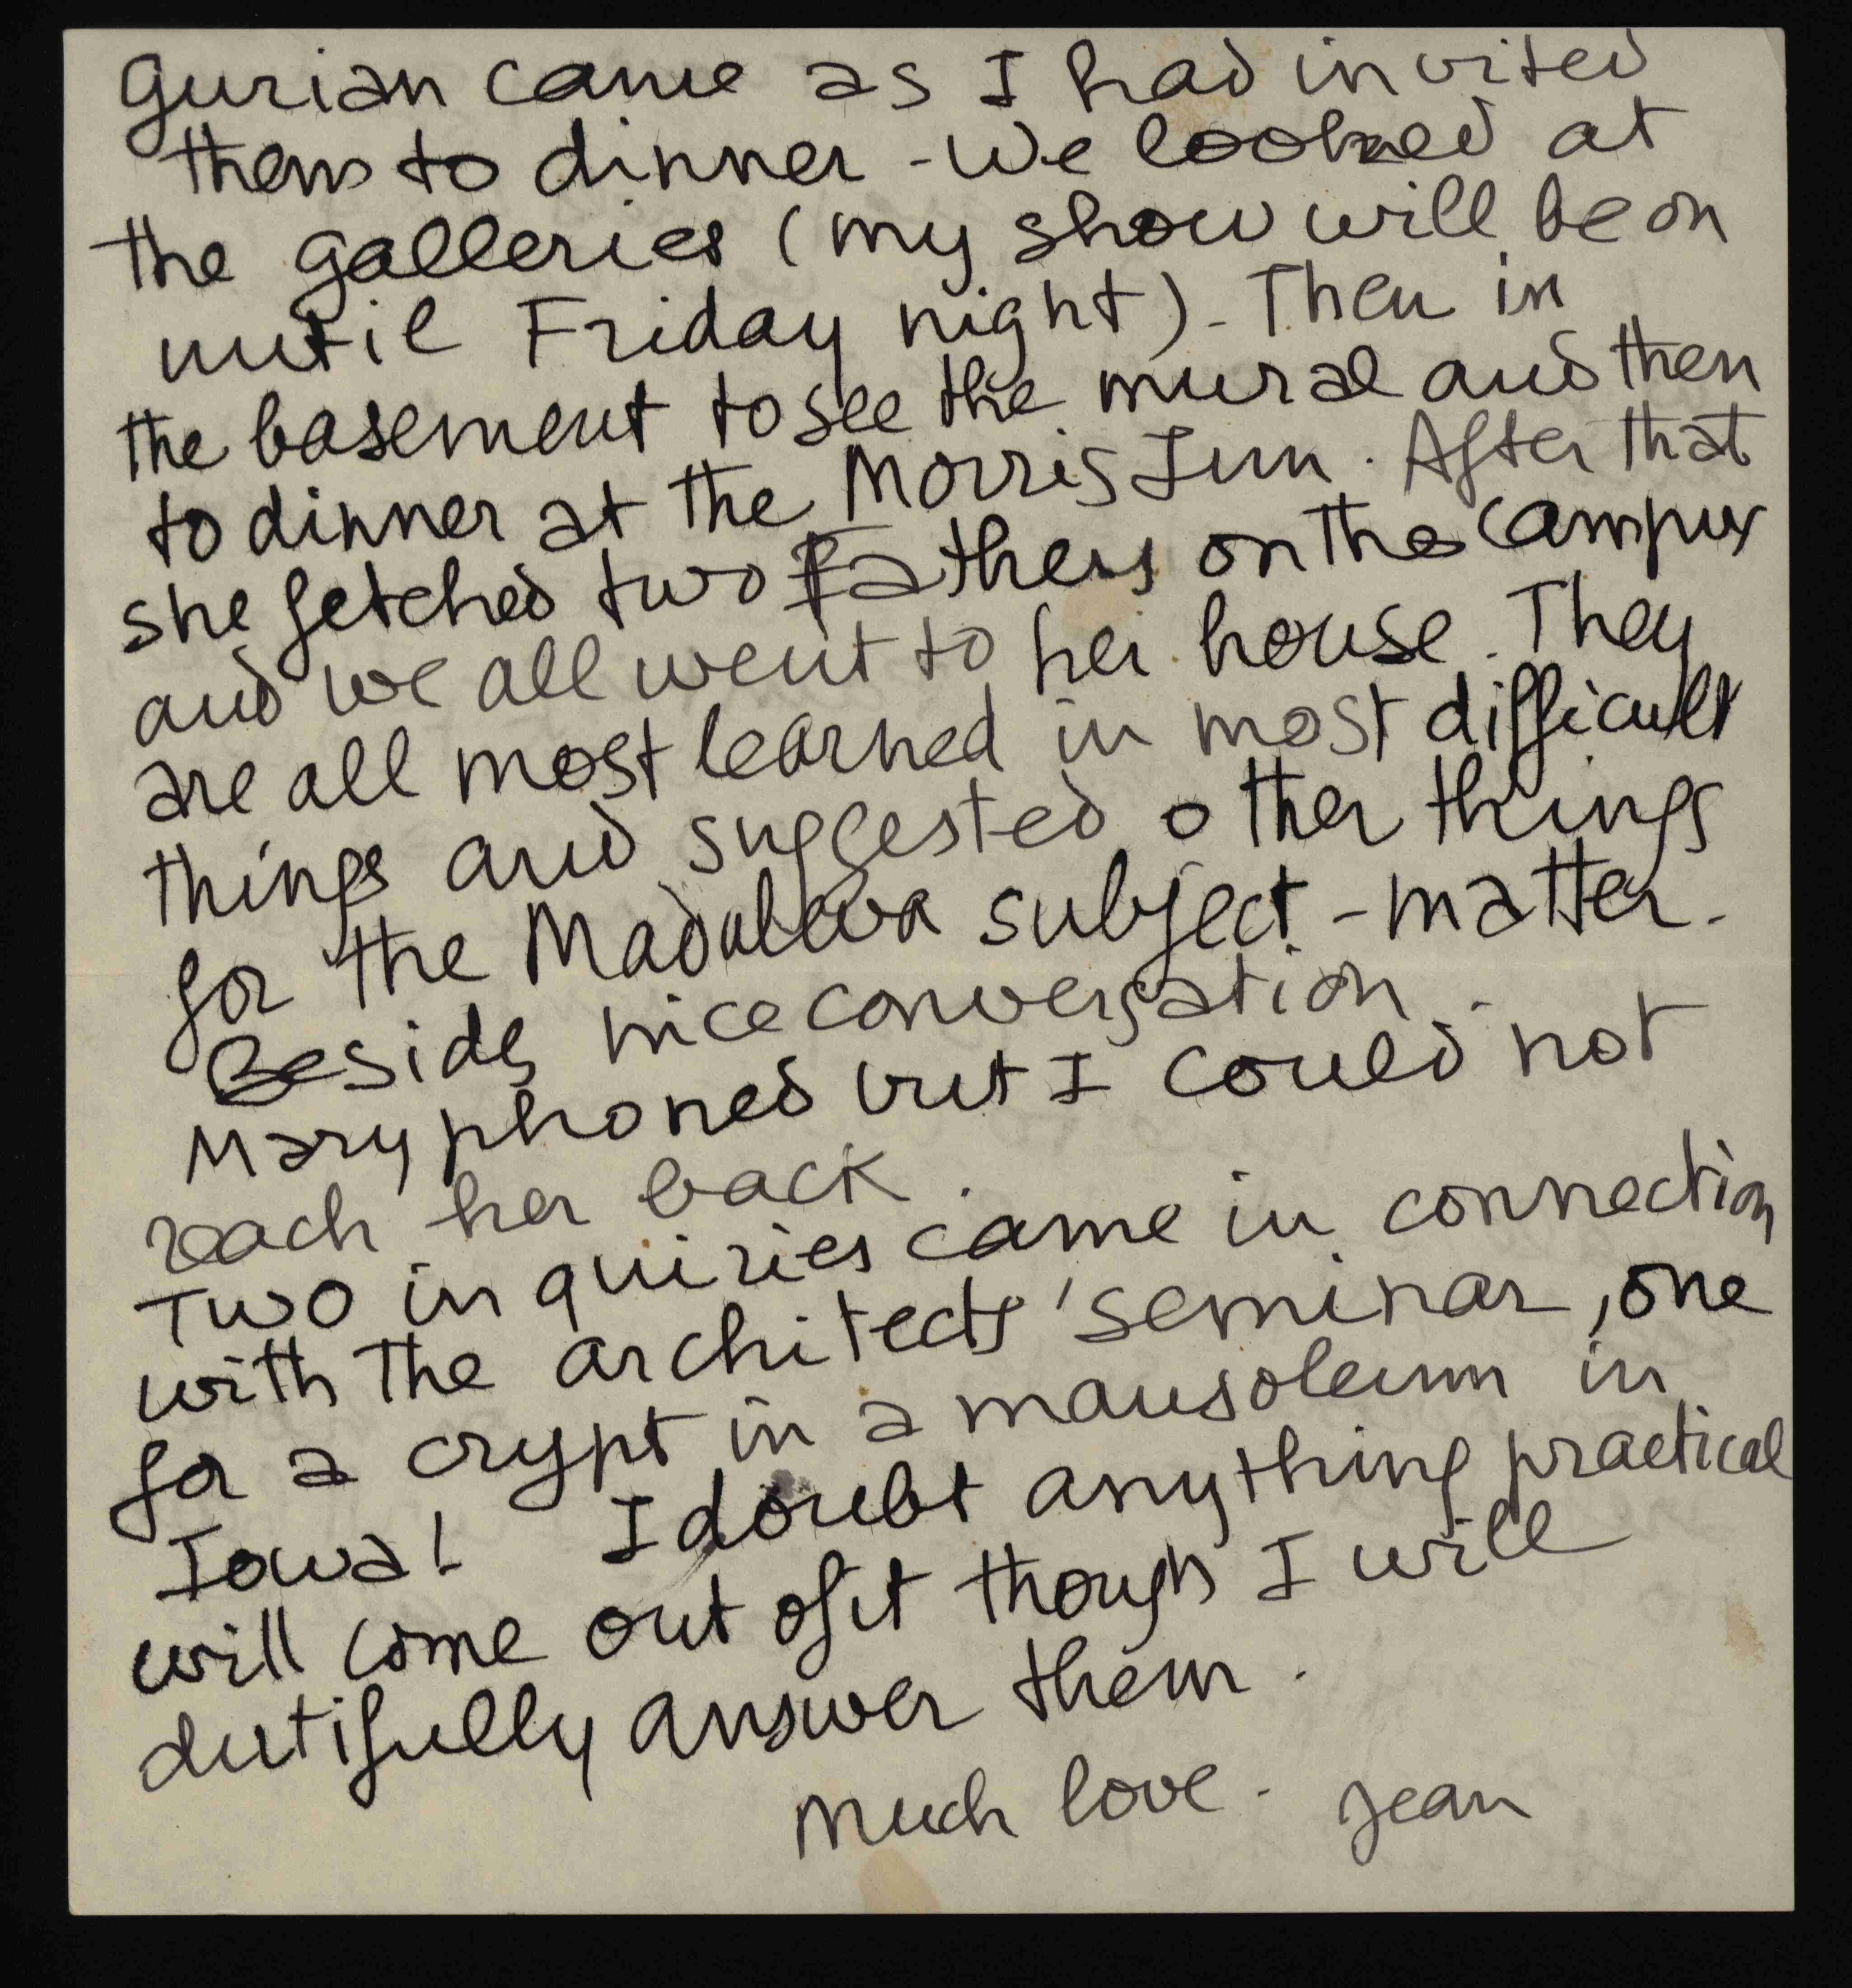 Gurian came as I had invited
them to dinner - We looked at
the galleries (my show will be on
until Friday night) - Then in
the basement to see the mural and then
to dinner at the Morris Inn. After that
she fetched two Fathers on the campus
and we all went to her house. They
are all most learned in most difficult
things and suggested other things
for the Madaleva subject-matter.
Besides nice conversation.
Mary phoned but I could not
reach her back.
Two inquiries came in connection
with the architects' seminar, one
for a crypt in a mausoleum in
Iowa! I doubt anything practical
will come out of it though I will
dutifully answer them.
Much love - Jean